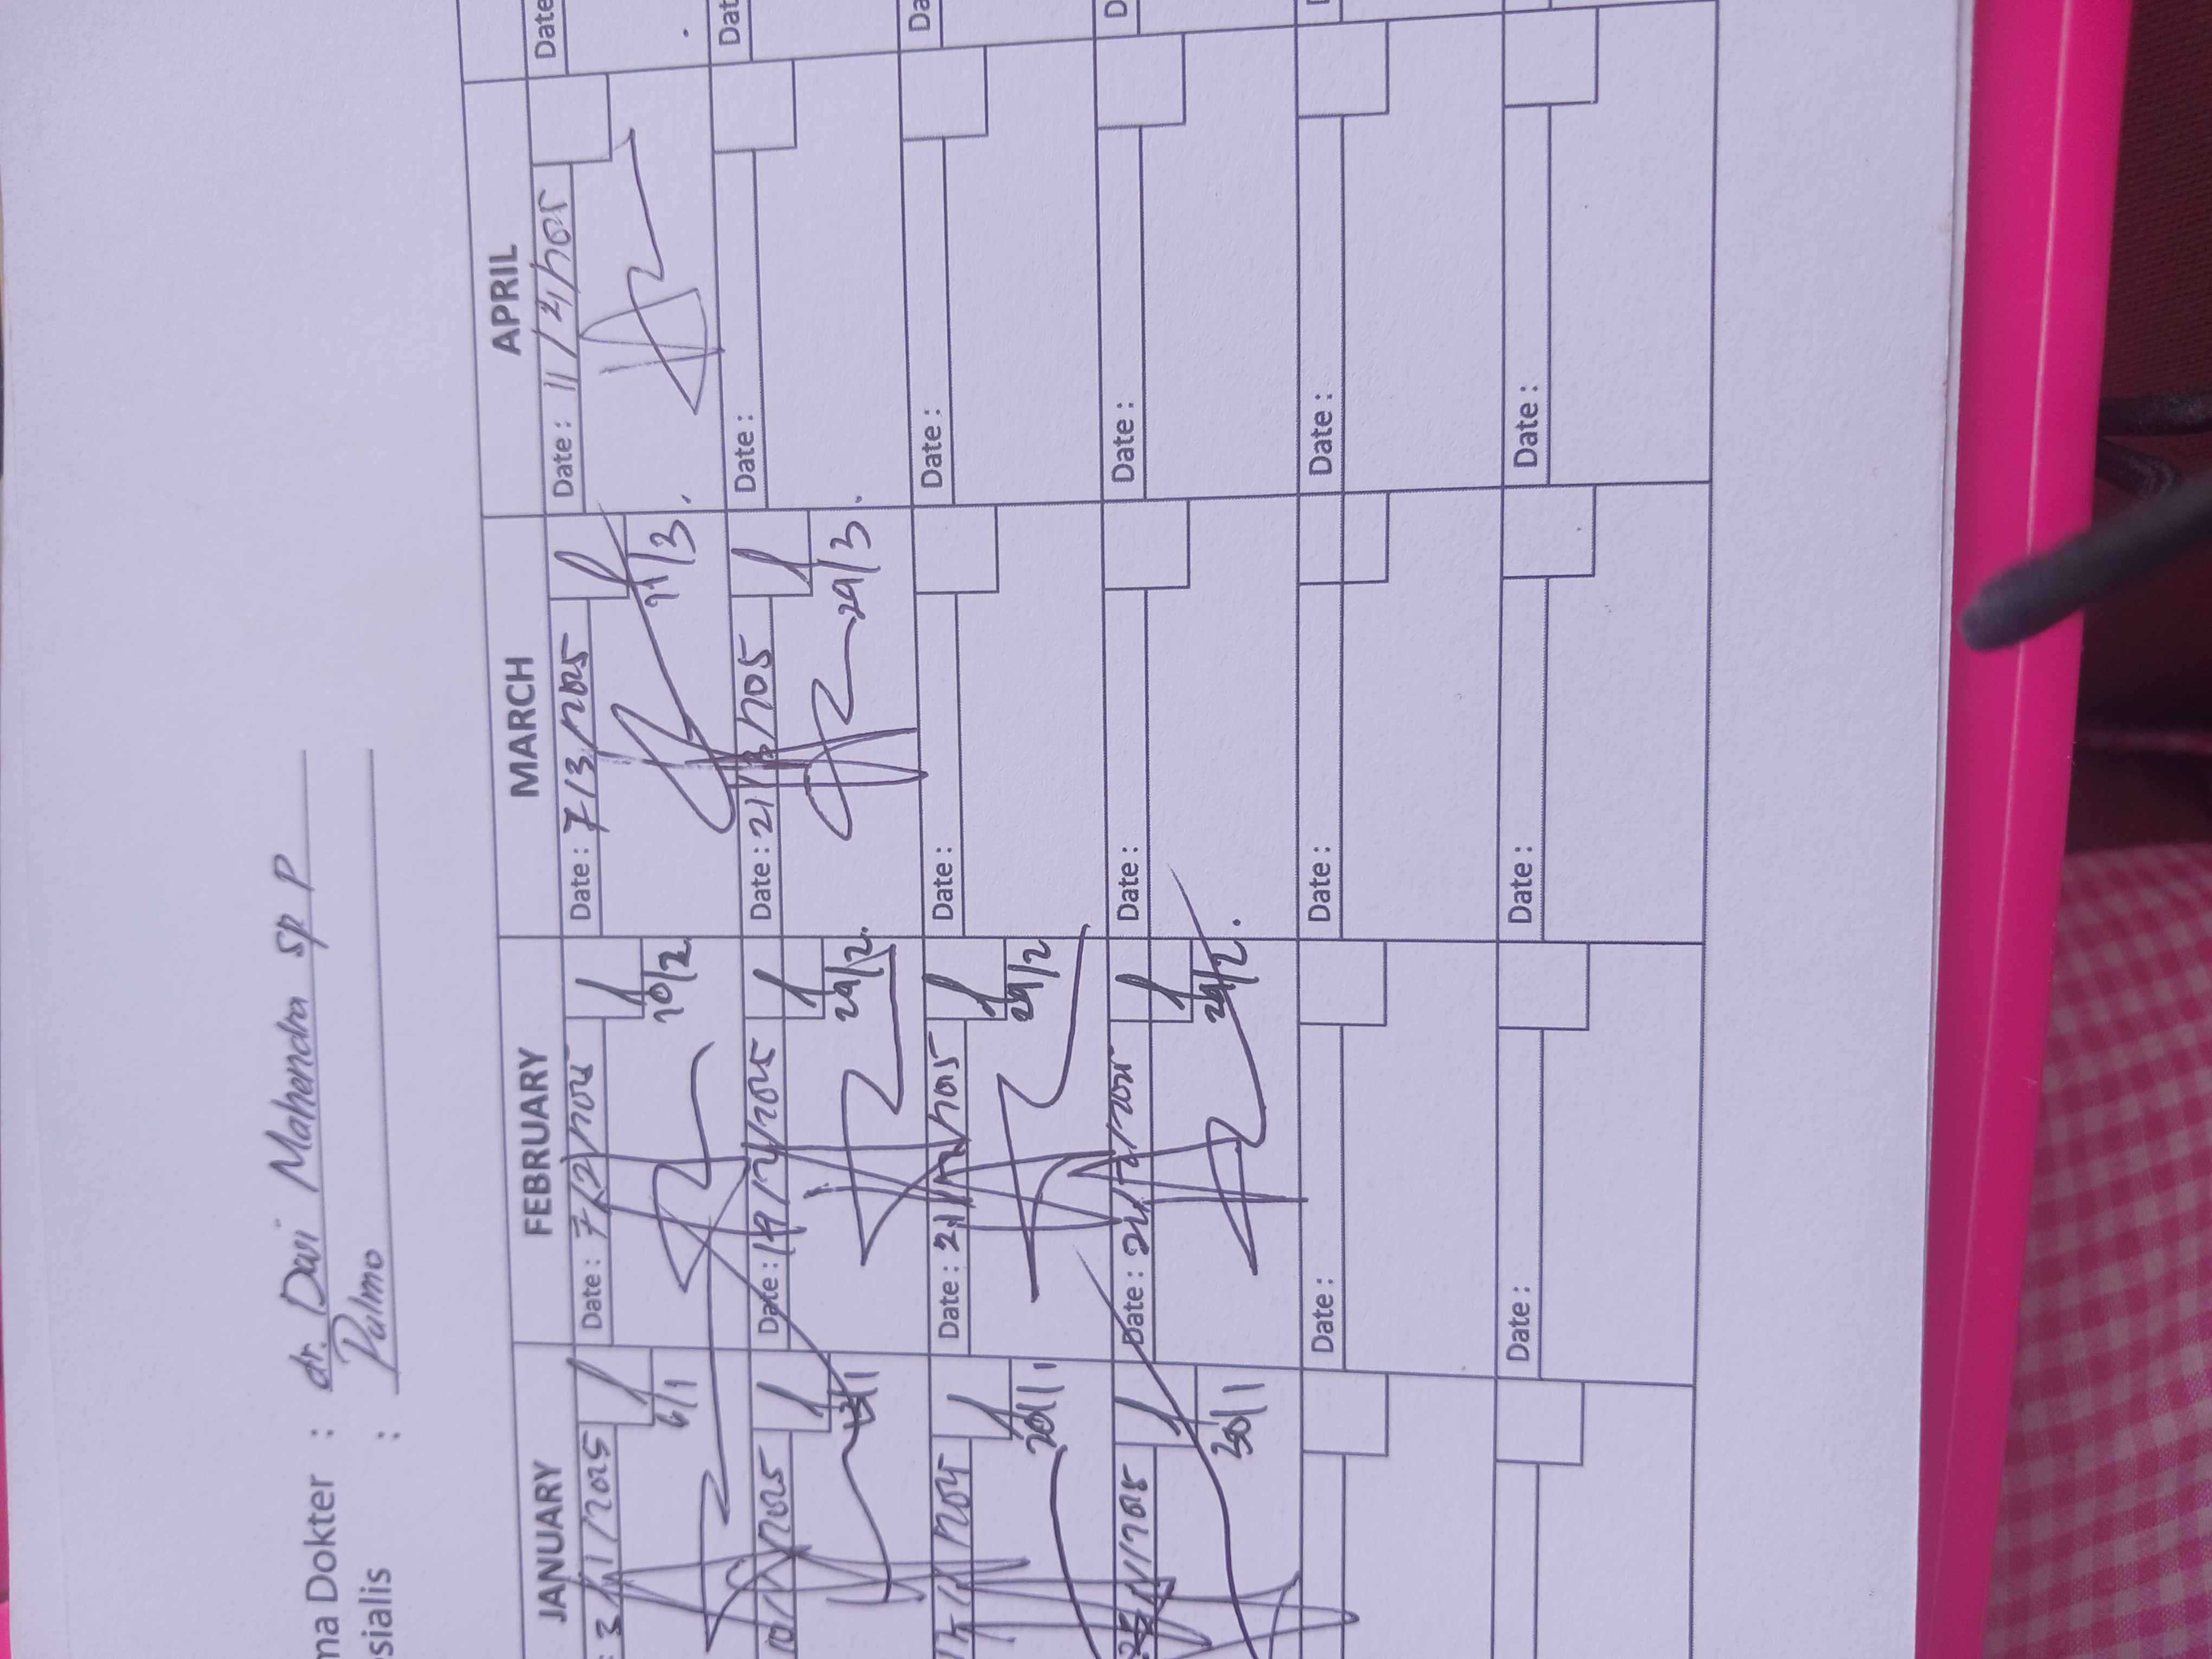 ma Dokter : dr. Dwi Mahendra sp P
sialis : Pulmo
JANUARY FEBRUARY MARCH APRIL
: 3/1/2025 Date : 7/2/2025 Date : 7/3/2025 Date : 11/4/2025 Date
6/1 10/2 11/3.
10/1/2025 Date : 14/2/2025 Date : 21/3/2025 Date : Dat
13/1 24/2. 24/3.
17/1/2025 Date : 21/2/2025 Date : Date : Da
20/1 24/2
Date : Date : Date : D
30/1 24/2.
Date : Date : Date :
Date : Date : Date :